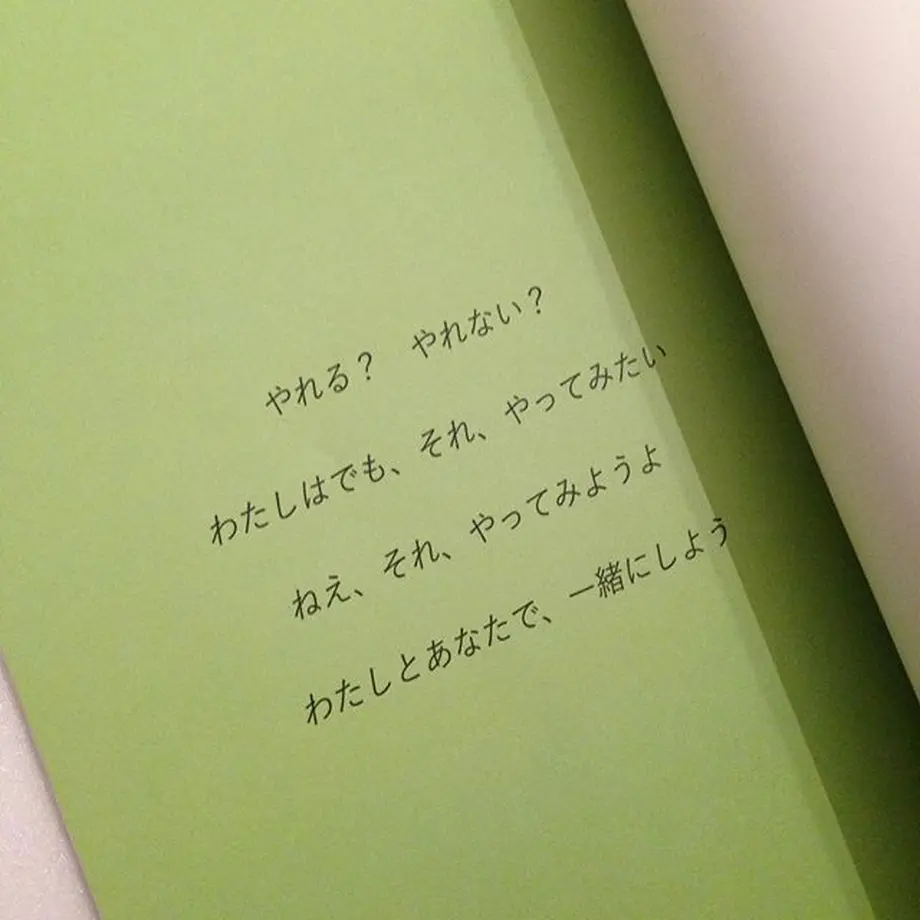 やれる？　やれない？
わたしはでも、それ、やってみたい
ねえ、それ、やってみようよ
わたしとあなたで、一緒にしよう